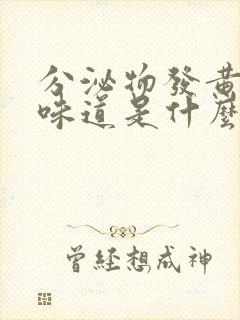 分泌物發黃
味道是什麼
曾經想成神